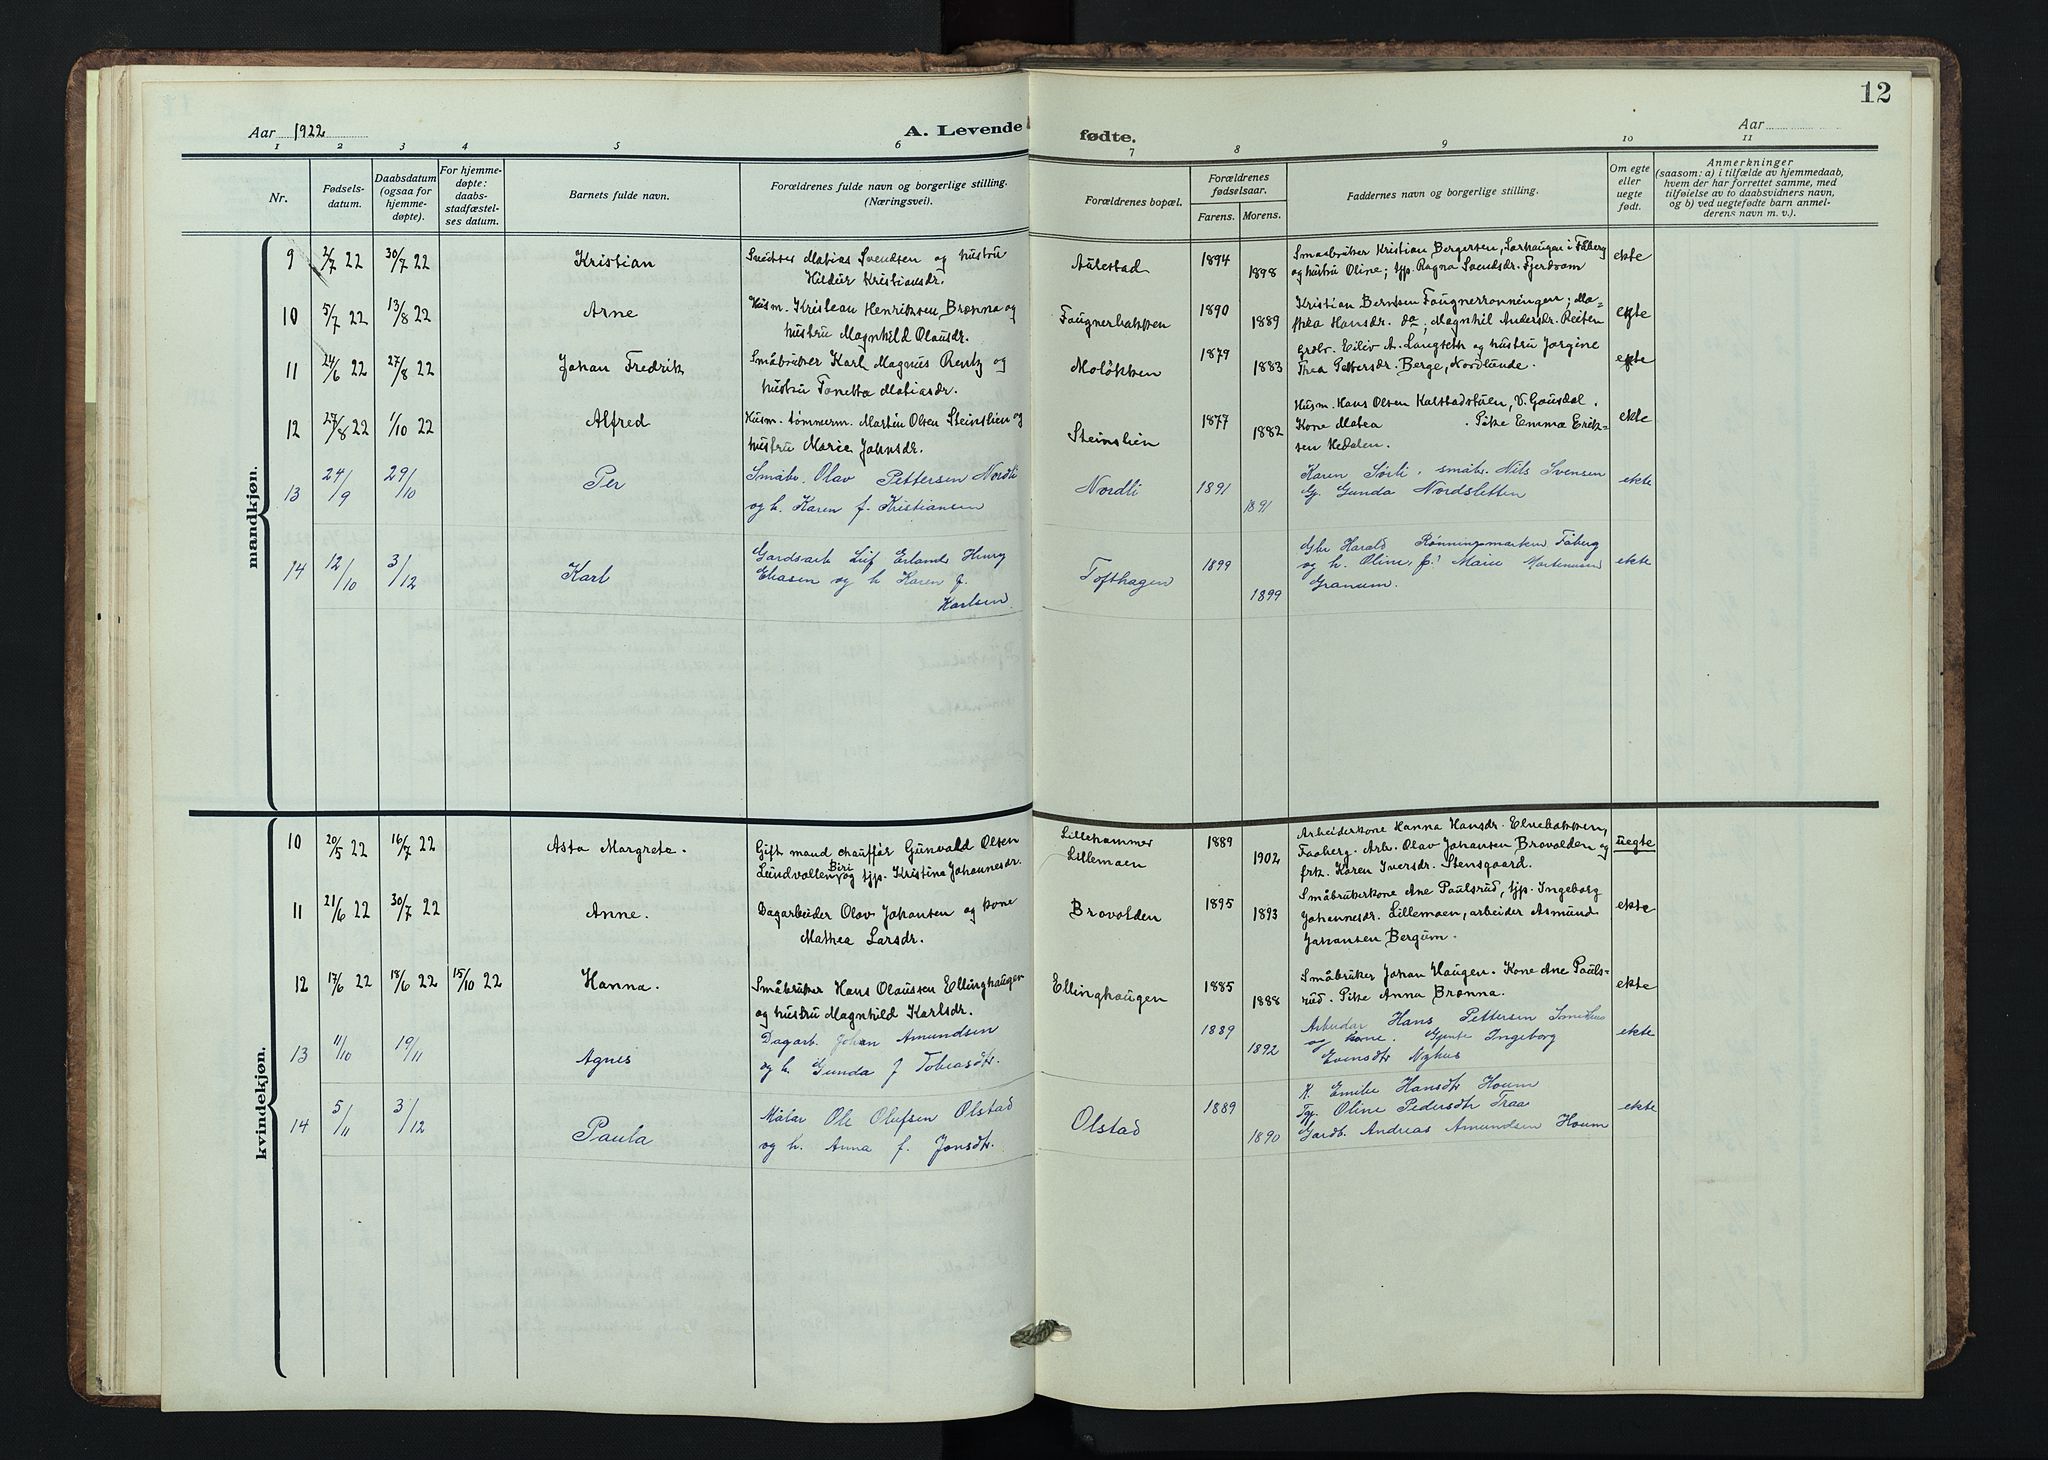 12
Aar 1922
A. Levende fødte.
Aar
1 2 3 4 5 6 7 8 9 10 11
Nr.
Fødsels-
datum.
Daabsdatum
(ogsaa for
hjemme-
døpte).
For hjemme-
døpte:
daabs-
stadfæstel-
ses datum.
Barnets fulde navn.
Forældrenes fulde navn og borgerlige stilling.
(Næringsvei).
Forældrenes bopæl.
Forældrenes
fødselsaar.
Farens. Morens.
Faddernes navn og borgerlige stilling.
Om egte
eller
uegte
født.
Anmerkninger
(saasom: a) i tilfælde av hjemmedaab,
hvem der har forrettet samme, med
tilføielse av to daabsvidners navn,
og b) ved uegtefødte barn anmel-
derens navn m. v.).
mandkjøn.
9 2/7 22 30/7 22 Kristian
Matias Svendsen og hustru
Kristiansdr.
Aulestad 1894 1898
Småbruker Kristian Bergersen, i Fåberg
og hustru Oline; tjp. Ragna Svendsdr. Fjerdsam
ekte
10 5/7 22 13/8 22 Arne
Husm. Kristian Henriksen Brønna og
hustru Magnhild Olausdr.
Faugnerbakken 1890 1889
Kristian Berntsen Faugnerrønningen; Ma-
thea Hansdr. do; Magnhil Andersdr. Reiten
ekte
11 24/6 22 27/8 22 Johan Fredrik
Småbruker Karl Magnus Rentz og
hustru Tonetta Matiasdr.
Moløkken 1879 1883
Grdbr. Eiliv A. Langseth og hustru Jørgine
Thea Pettersdr. Berge, Nordlunde.
ekte
12 27/8 22 1/10 22 Alfred
Husm. tømmerm. Martin Olsen Steinslien og
hustru Marie Johnsdr.
Steinslien 1877 1882
Husm. Hans Olsen Kalstadstuen, V. Gausdal.
Kone Matea . Pike Emma Erik-
sen Hedalen.
ekte
13 24/9 29/10 Per
Småbr. Olav Pettersen Nordli
og h. Karen f. Kristiansen
Nordli 1891 1891
Karen Sørli. småbr. Nils Svensen
Gj. Gunda Nordsletten
ekte
14 12/10 3/12 Karl
Gardsarb Leif Erland Henry
Eliasen og h Karen f.
Karlsen
Tofthagen 1899 1899
Gbr Harald Rønningsmarken Fåberg
og h. Oline, p. Marie Martinusen
Granum.
ekte
kvindekjøn.
10 20/5 22 16/7 22 Asta Margrete.
Gift mand chauffør Gunvald Olsen
Biri
Lundvollen, og tjp. Kristina Johannesdr.
Lillehammer
Lillemoen
1889 1902
Arbeiderkone Hanna Hansdr. Elvebakken,
Faaberg. Arb. Olav Johansen Brovolden og
frk. Karen Iversdr. Stensgaard.
uegte
11 21/6 22 30/7 22 Anne.
Dagarbeider Olav Johansen og kone
Mathea Larsdr.
Brovolden 1895 1893
Småbrukerkone Ane Paulsrud, tjp. Ingeborg
Johannesdr. Lillemoen, arbeider Asmund
Johansen Bergum.
ekte
12 17/6 22 18/6 22 15/10 22 Hanna.
Småbruker Hans Olaussen Ellinghaugen
og hustru Magnhild Karlsdr.
Ellinghaugen 1885 1888
Småbruker Johan Haugen. Kone Ane Pauls-
rud. Pike Anna Brønna.
ekte
13 11/10 19/11 Agnes
Dagarb. Johan Amundsen
og h. Gunda f Tobiasdtr.
1889 1892
Arbeidar Hans Pettersen
og kone. Gjente Ingeborg
Evensdtr Nyhus
ekte
14 5/11 3/12 Paula
Målar Ole Olufsen Olstad
og h. Anna f. Jonsdtr.
Olstad 1889 1890
K. Emilie Hansdtr Houm
Tj. Oline Pedersdtr Traa
Gardb. Andreas Amundsen Houm
ekte